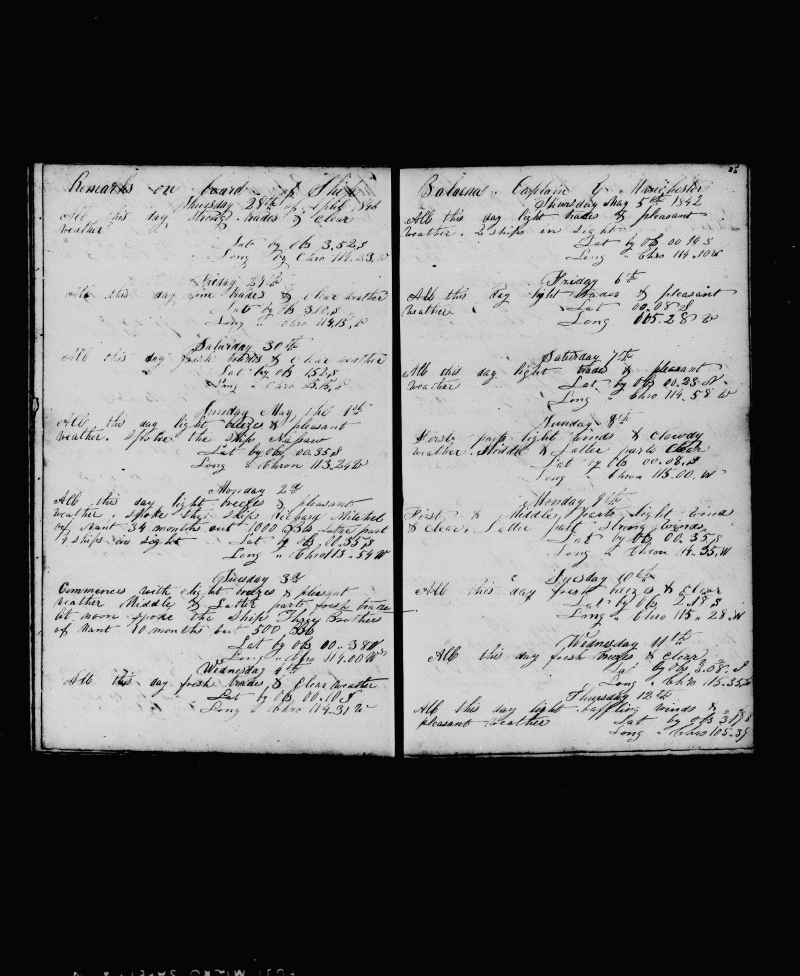 Remarks on board of Ship
Thursday 28th of April 1842
All this day strong trades & clear
weather
Lat by obs 3,52,S
Long by Chro 114.23,W
Friday 29th
All this day fine trades & clear weather
Lat by obs 310,S
Long " Chro 114,15,W
Saturday 30th
All this day fresh trades & clear weather
Lat by obs 152,S
Long " Chro
Sunday May the 1th
All this day light breezes & pleasant
weather. Spoke the Ship
Lat by obs 00.35,S
Long " Chron 113.24W
Monday 2nd
All this day light breezes & pleasant
weather. Spoke the Ship Richard Mitchel
of Nant 34 months out 1000 Bbls
4 ships in sight Lat by obs 00.35,S
Long " Chro 113-54W
Tuesday 3d
Commences with light breezes & pleasant
weather Middle & Latter parts fresh trades
At noon spoke the Ship Three Brothers
of Nant 10 months out 500 Bbls
Lat by obs 00-38
Long " Chro 114.00W
Wednesday 4th
All this day fresh trades & Clear weather
Lat by obs 00.10,S
Long " Chro 114.31 W
Balaena. Captain by Manchester
Thursday May 5th 1842
All this day light trades & pleasant
weather. 2 ships in sight
Lat by obs 00 14,S
Long " Chro 114.10W
Friday 6th
All this day light trades & pleasant
weather Lat 00.08,S
Long 115.28 W
Saturday 7th
All this day light trades & pleasant
weather Lat by obs 00.23.N
Long " Chro 114.58 W
Sunday 8th
First part light winds & cloudy
weather. Middle & Latter parts clear
Lat by obs 00.08.S
Long " Chron 115.00.W
Monday 9th
First & Middle parts light winds
& clear, Latter part strong winds
Lat by obs 00.35,S
Long " Chron 114.35.W
Tuesday 10th
All this day fresh breezes & clear
Lat by obs 2.18 S
Long " Chro 115.28.W
Wednesday 11th
All this day fresh breezes & clear
Lat by obs 3.08.S
Long " Chro 115.35,W
Thursday 12th
All this day light baffling winds &
pleasant weather Lat by obs 317 S
Long " Chro 105-39